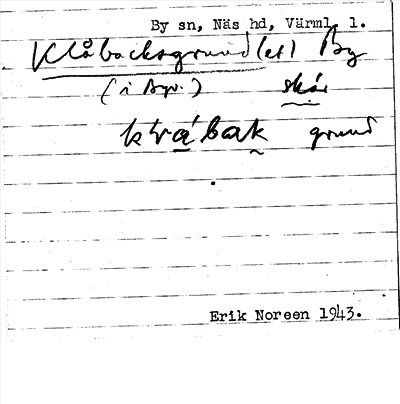 By sn, Näs hd, Värml. l.
Klåbacksgrund(et) By
(i Byv.) skär
klåbak grund
Erik Noreen 1943.